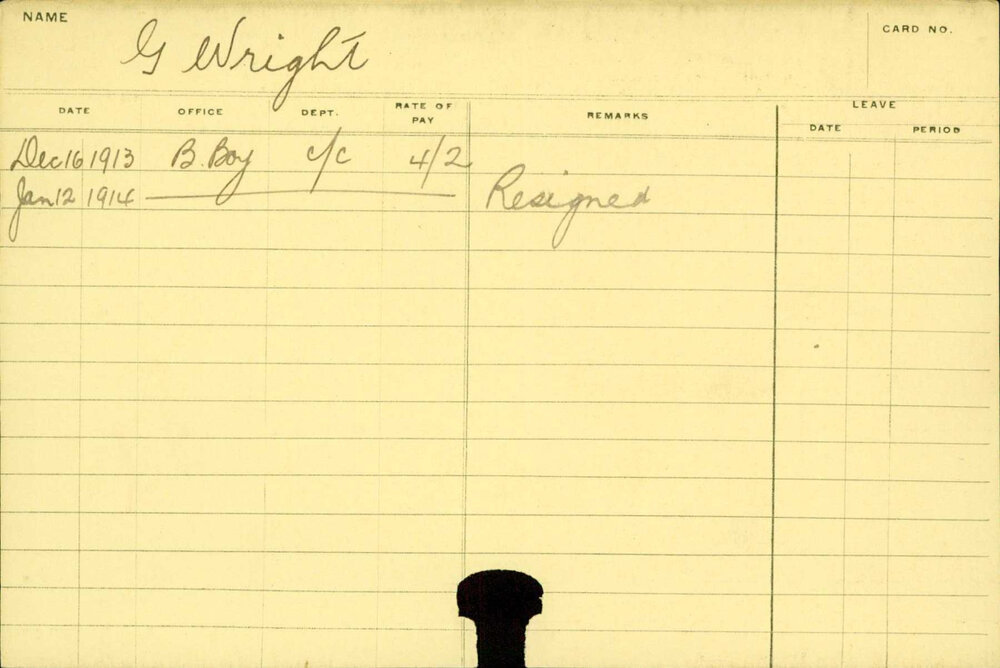 NAME
G Wright
CARD NO.
DATE OFFICE DEPT. RATE OF PAY REMARKS LEAVE
DATE PERIOD
Dec 16 1913 B. Boy c/c 4/2
Jan 12 1914 Resigned